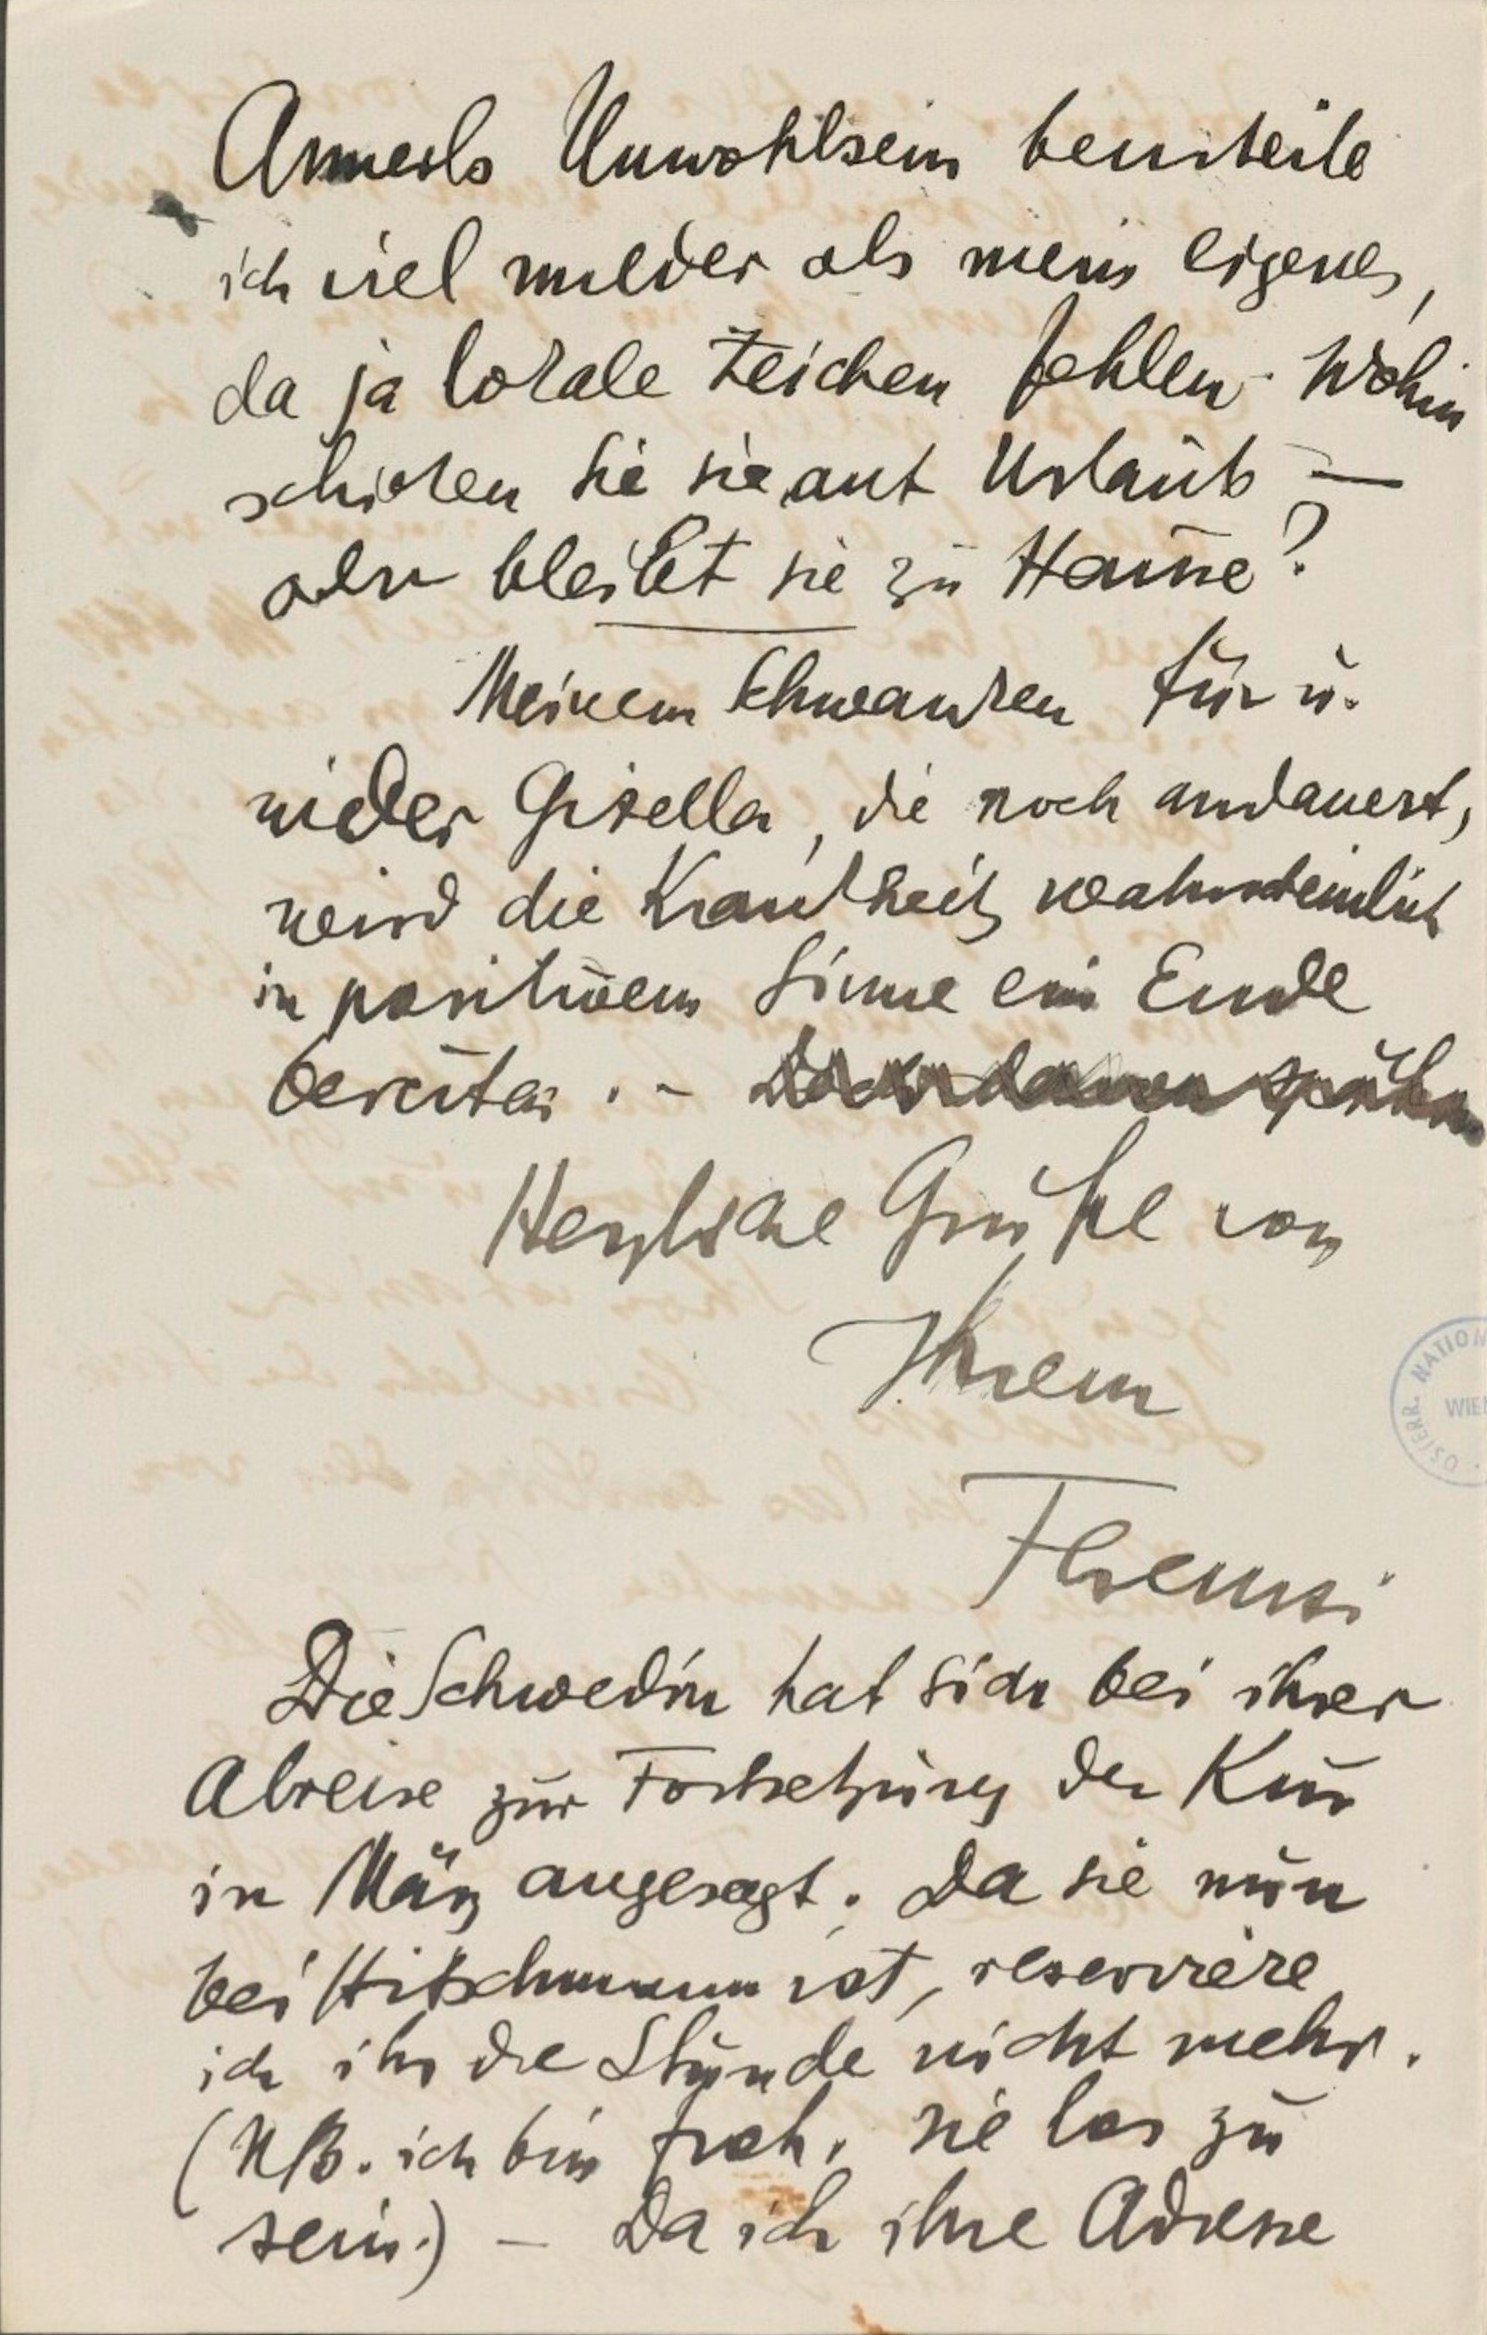 Annerls Unwohlsein beurteile
ich viel milder als mein eigenes,
da ja lokale Zeichen fehlen. Wohin
schicken Sie sie auf Urlaub —
oder bleibt sie zu Hause?
Meinem Schwanken für u.
wider Gisella, die noch andauert,
wird die Krankheit wahrscheinlich
in positivem Sinne ein Ende
bereiten. –
Herzliche Grüße von
Ihrem
Ferenczi
Die Schwedin hat sich bei ihrer
Abreise zur Fortsetzung der Kur
in März angesagt. Da sie nun
bei Hitschmann ist, reserviere
ich ihr die Stunde nicht mehr.
(NB. ich bin froh, sie los zu
sein.) – Da ich ihre Adresse
ÖSTERR. NATION
WIE